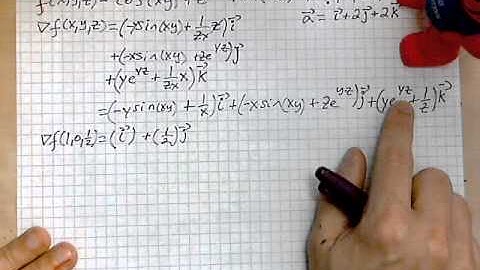 f(x,y,z) = cos(xy) +
a⃗ = i⃗ + 2j⃗ + 2k⃗
∇f(x,y,z) = (-ysin(xy) + 1/zx z) i⃗
+ (-xsin(xy) + ze^yz) j⃗
+ (ye^yz + 1/zx x) k⃗
= (-ysin(xy) + 1/x) i⃗ + (-xsin(xy) + ze^yz) j⃗ + (ye^yz + 1/z) k⃗
∇f(1,0,1/2) = (i⃗) + (1/2) j⃗